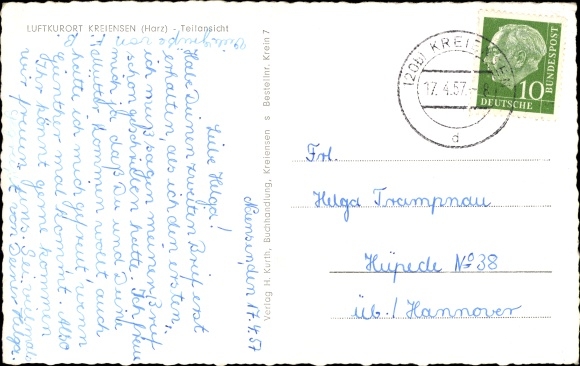 LUFTKURORT KREIENSEN (Harz) - Teilansicht
Kreiensen, den 17.4.57
Liebe Helga!
Habe Deinen zweiten Brief erst
erhalten, als ich den ersten,
ich muß sagen meinen Brief
schon geschrieben hatte. Ich freue
mich ja daß Du und Deine
Mutter kommen wollt, auch
hätte ich mich gefreut, wenn
Günther mal kommt. Also
Ihr könnt gerne kommen
wir freuen uns. Sei vielmals
von Deiner Helga.
Verlag H. Kurth, Buchhandlung, Kreiensen s Bestellnr. Krein 7
(20b) KREIENSEN
17.4.57
d
10
DEUTSCHE
BUNDESPOST
Frl.
Helga Trampnau
Hüpede No 38
üb./Hannover